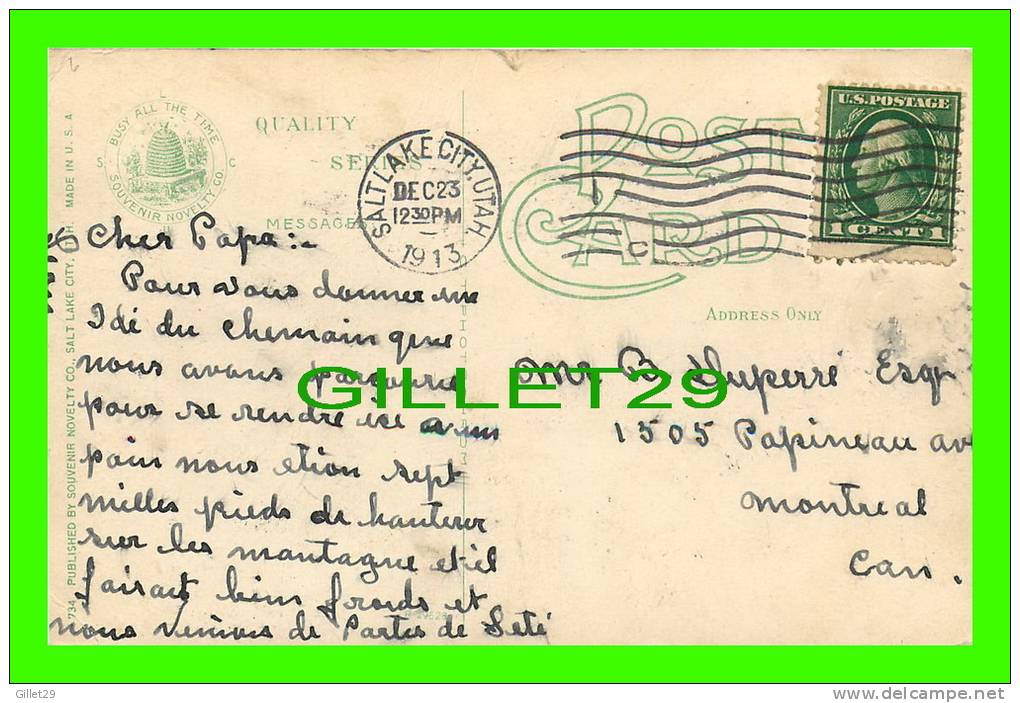 BUSY ALL THE TIME
S L C
SOUVENIR NOVELTY CO.
QUALITY
MESSAGE
734 PUBLISHED BY SOUVENIR NOVELTY CO., SALT LAKE CITY, UTAH. MADE IN U.S.A
SALT LAKE CITY, UTAH.
DEC 23
12 30 PM
1913
POST CARD
U.S. POSTAGE
1 CENT 1
ADDRESS ONLY
Cher Papa :-
Pour vous donner une
Idé du chemain que
nous avons parcourue
pour se rendre ici a un
poin nous etion sept
milles pieds de hauteur
sur les montagne et il
faisait bien froids et
nous venions de Partir de
Mr Duperré Esq
1505 Papineau av
Montreal
Can.
GILLET29
Gillet29
http://www.delcampe.net